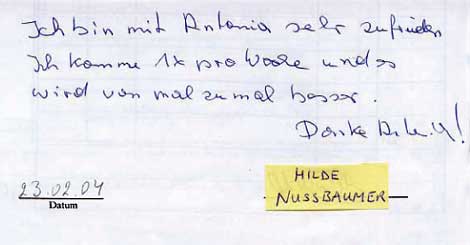 Ich bin mit Antonia sehr zufrieden
Ich komme 1x pro Woche und es
wird von mal zu mal besser.
Danke
23.02.04
Datum
HILDE
NUSSBAUMER